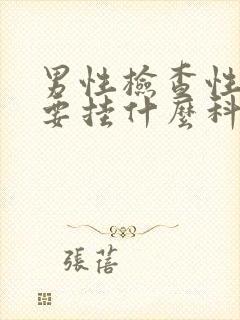 男性檢查性
要挂什麼科
張蓓